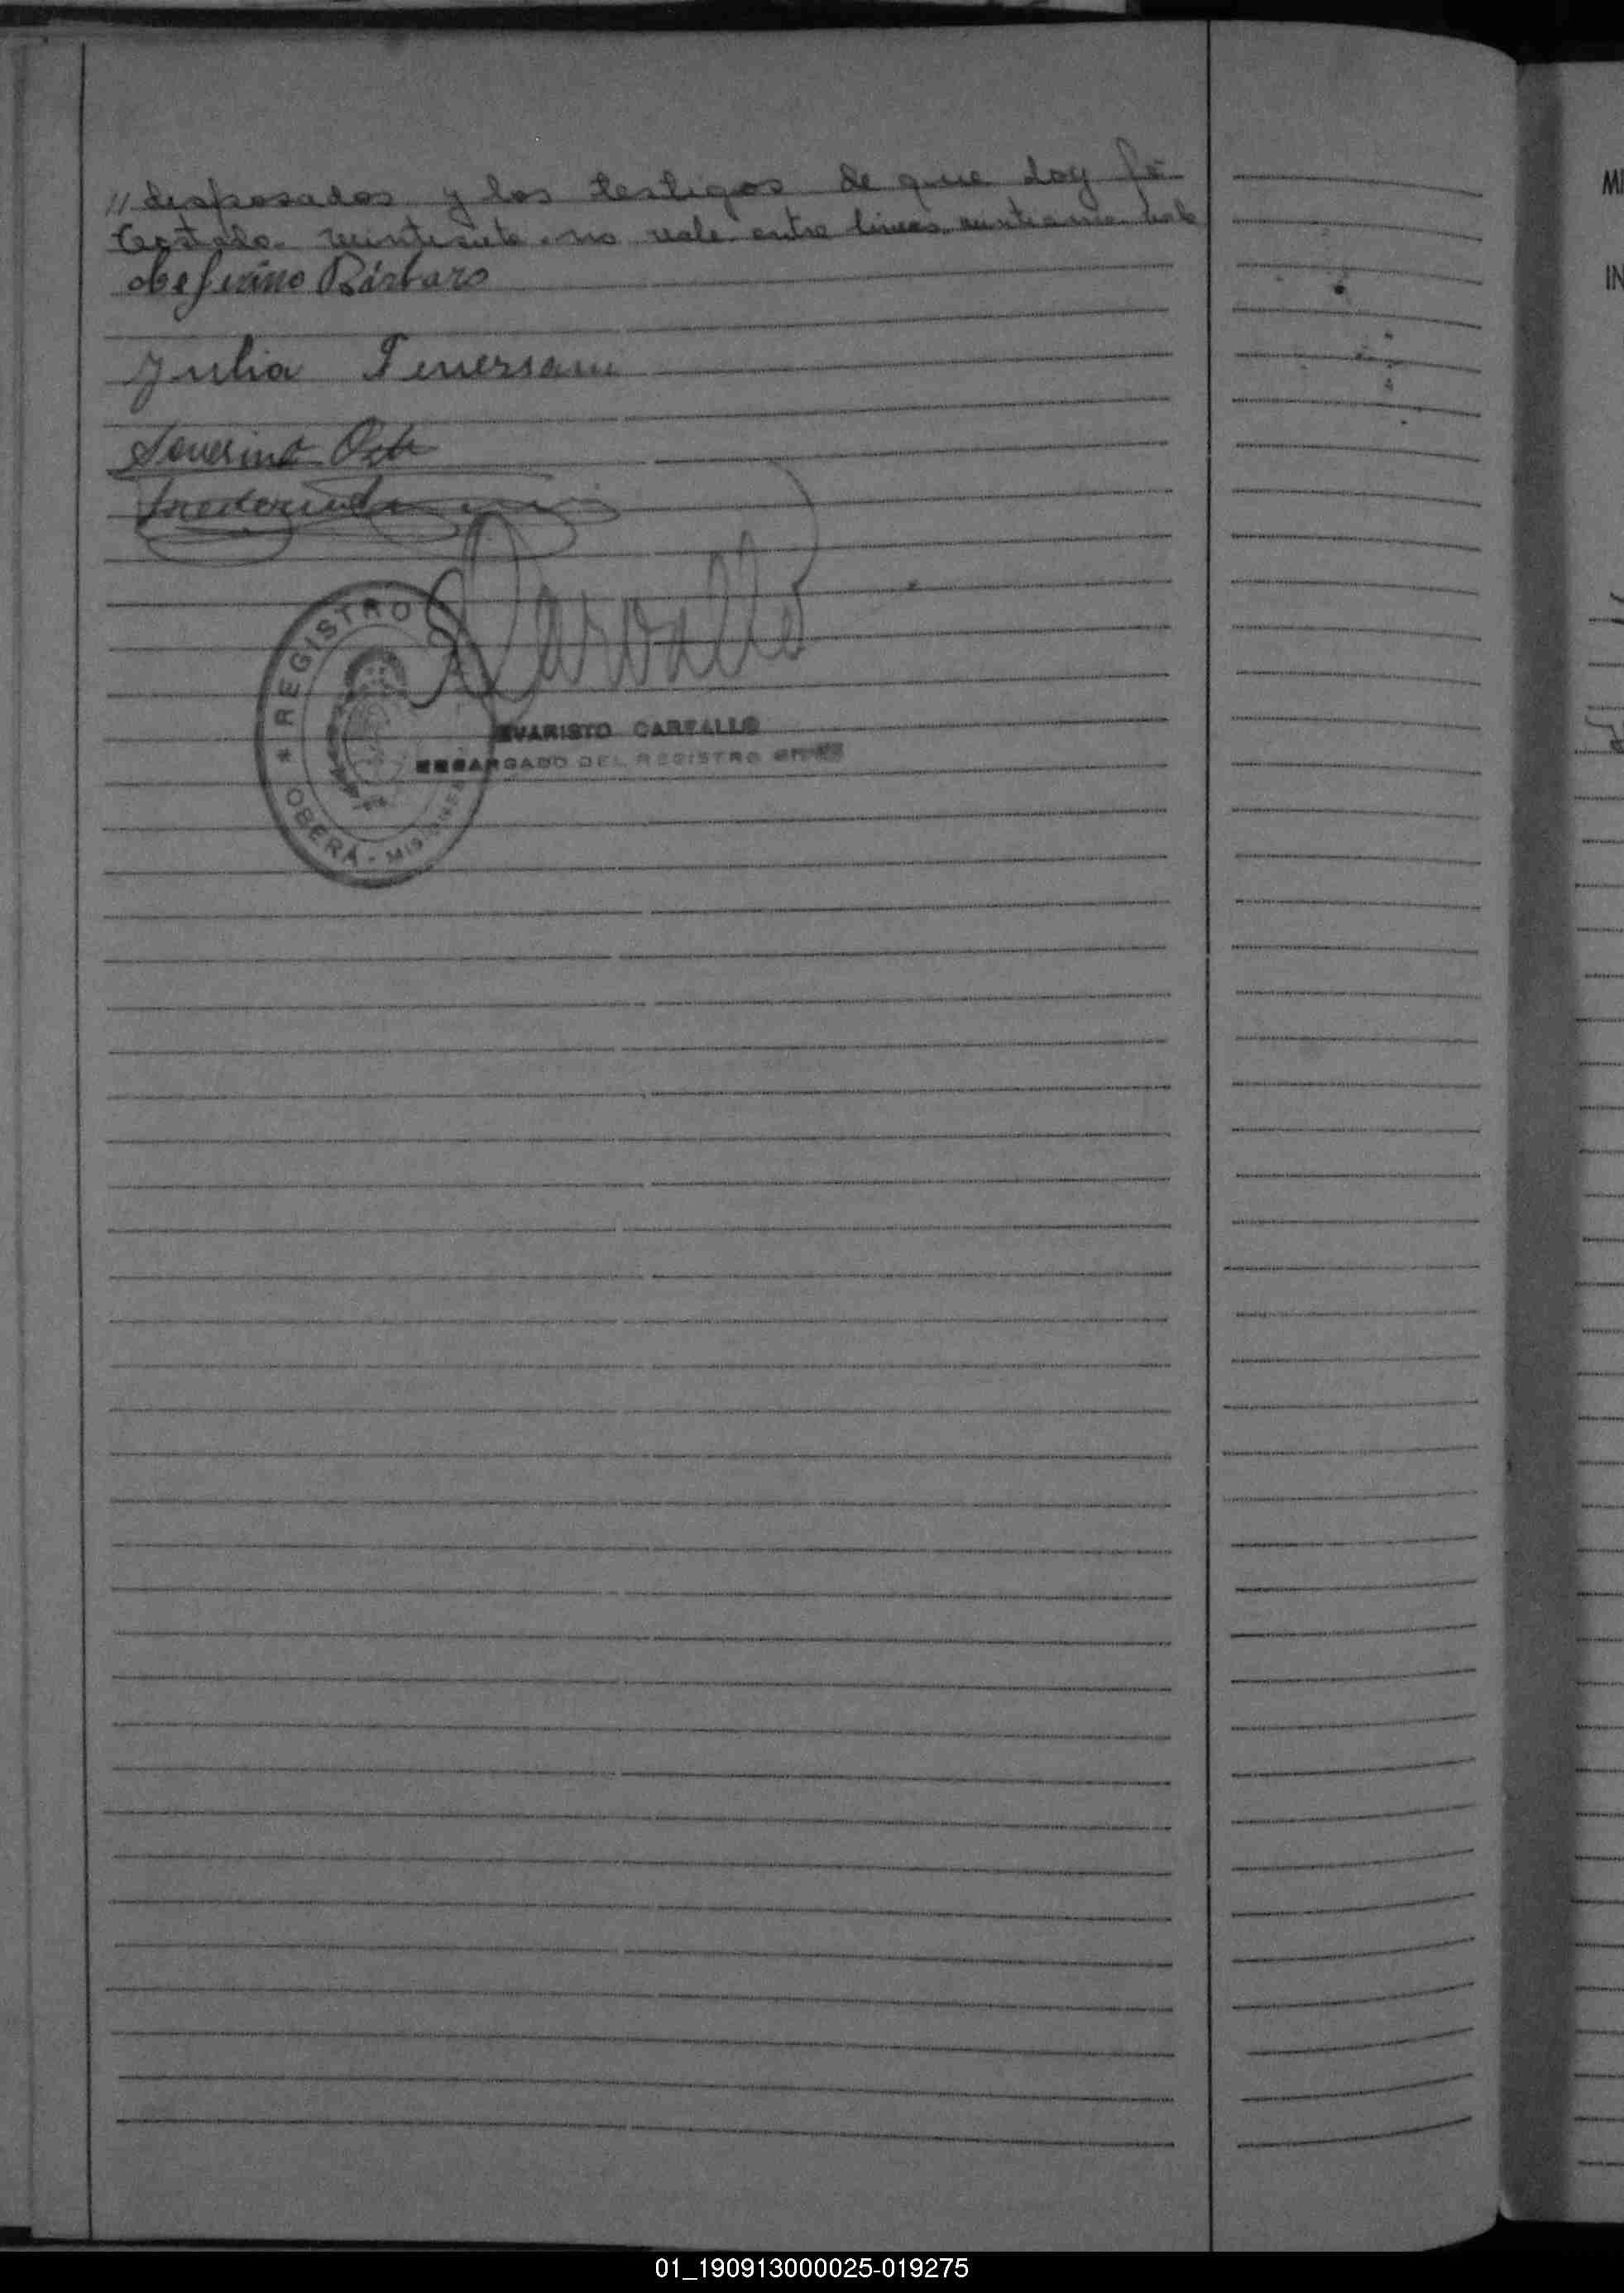 // desposados y los testigos de que doy fé
Testado. veintisiete. no vale. entre lineas. vale
Ceferino Bárbaro
Julia
Severino
Carvallo
REGISTRO
OBERÁ - MISIONES
EVARISTO CARVALLO
ENCARGADO DEL REGISTRO CIVIL
MI
IN
01_190913000025-019275